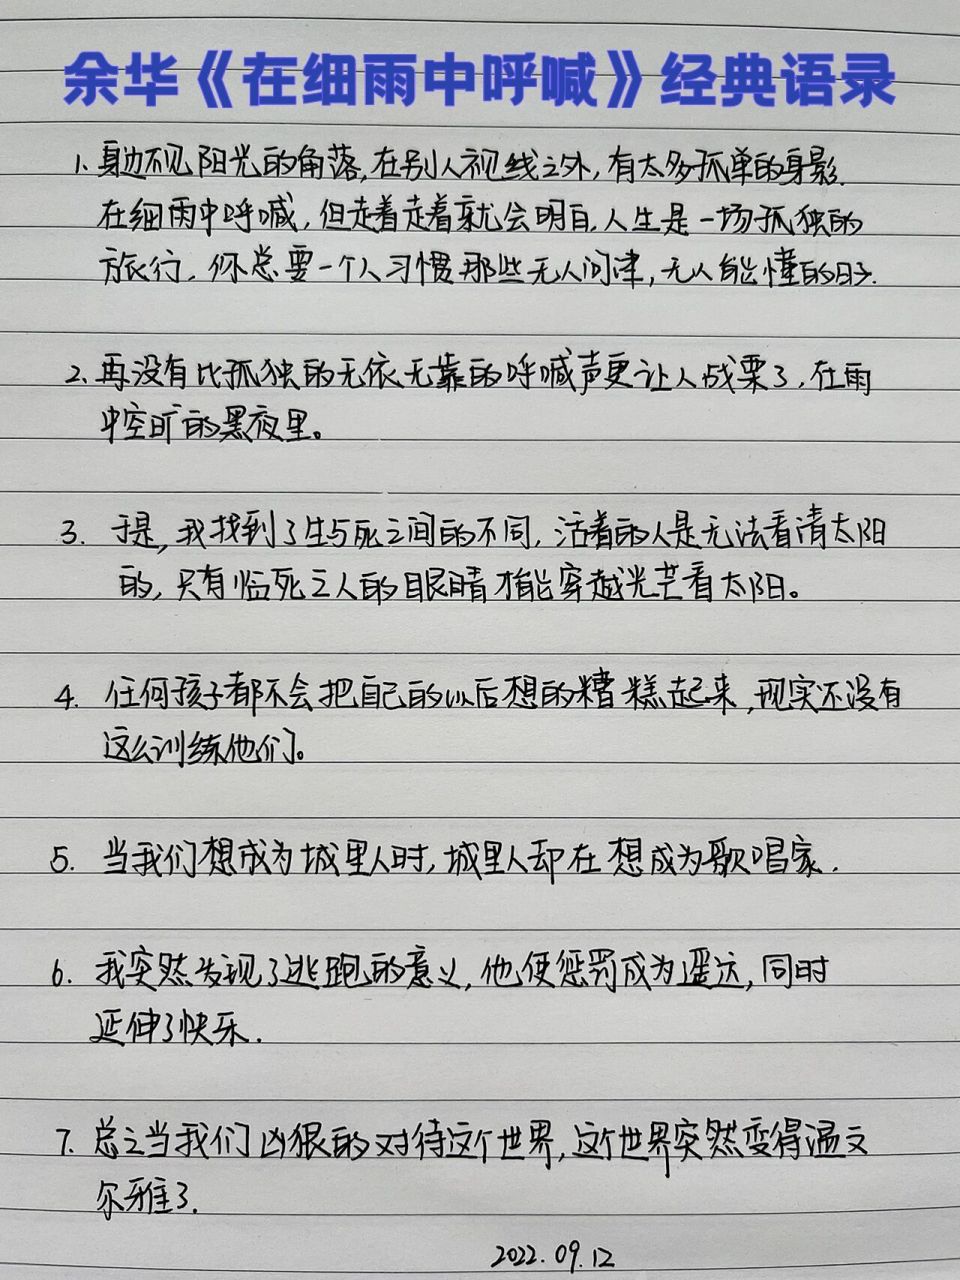 余华《在细雨中呼喊》经典语录
1. 身边不见阳光的角落,在别人视线之外,有太多孤单的身影.
在细雨中呼喊,但走着走着就会明白.人生是一场孤独的
旅行.你总要一个人习惯那些无人问津,无人能懂的日子.
2. 再没有比孤独的无依无靠的呼喊声更让人战栗了,在雨
中空旷的黑夜里。
3. 于是,我找到了生与死之间的不同,活着的人是无法看清太阳
的,只有临死之人的眼睛才能穿越光芒看太阳。
4. 任何孩子都不会把自己的以后想的糟糕起来,现实还没有
这么训练他们。
5. 当我们想成为城里人时,城里人却在想成为歌唱家.
6. 我突然发现了逃跑的意义,他使惩罚成为遥远,同时
延伸了快乐.
7. 总之当我们凶狠的对待这个世界,这个世界突然变得温文
尔雅了.
2022.09.12